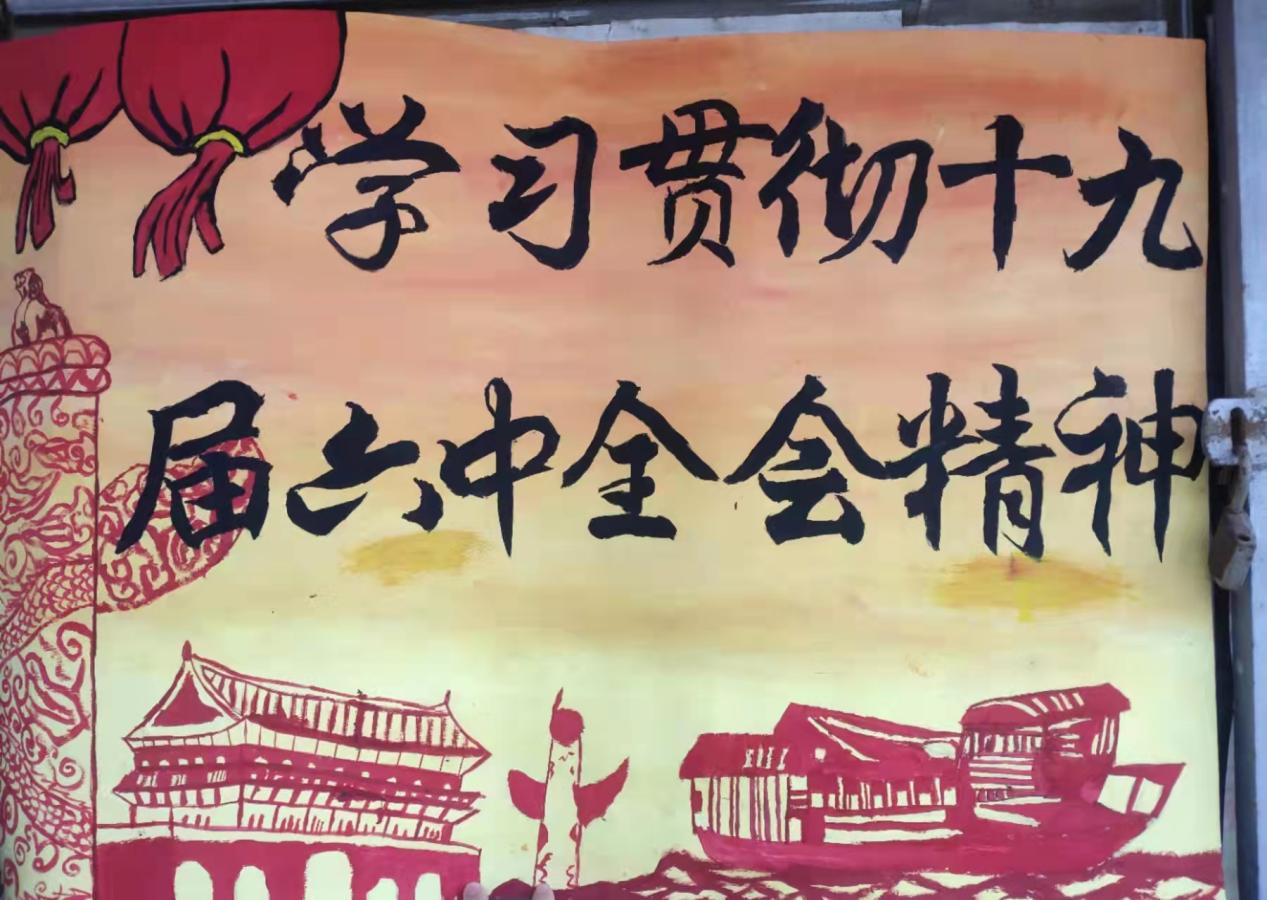 学习贯彻十九
届六中全会精神